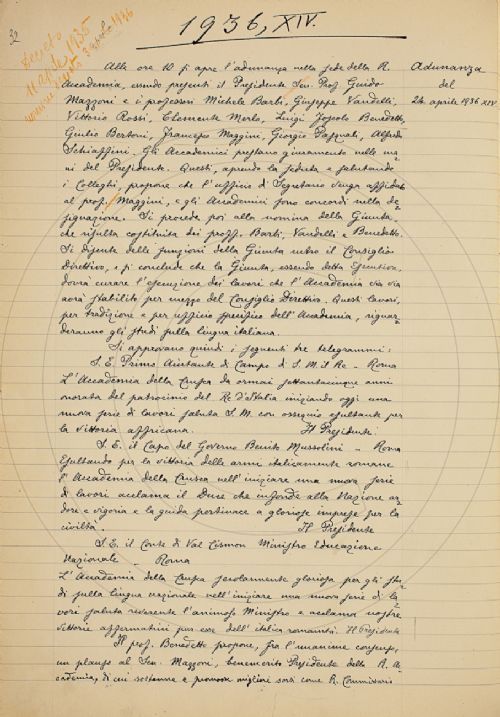 32
1936, XIV.
Decreto
11 aprile 1935
nomine decreto 3 aprile 1936
Adunanza
del
24 aprile 1936 XIV
Alle ore 10 si apre l'adunanza nella sede della R.
Accademia, essendo presenti il Presidente Sen. Prof. Guido
Mazzoni e i professori Michele Barbi, Giuseppe Vandelli,
Vittorio Rossi, Clemente Merlo, Luigi Foscolo Benedetto,
Giulio Bertoni, Francesco Maggini, Giorgio Pasquali, Alfredo
Schiaffini. Gli Accademici prestano giuramento nelle ma=
ni del Presidente. Questi, aprendo la seduta e salutando
i Colleghi, propone che l'ufficio di Segretario venga affidato
al prof. Maggini, e gli Accademici sono concordi nella de=
signazione. Si procede poi alla nomina della Giunta,
che risulta costituita dei proff. Barbi, Vandelli e Benedetto.
Si discute delle funzioni della Giunta entro il Consiglio
Direttivo, e si conclude che la Giunta, essendo detta Esecutiva,
dovrà curare l'esecuzione dei lavori che l'Accademia via via
avrà stabilito per mezzo del Consiglio Direttivo. Questi lavori,
per tradizione e per ufficio specifico dell'Accademia, riguar=
deranno gli studi sulla lingua italiana.
Si approvano quindi i seguenti tre telegrammi:
S. E. Primo Aiutante di Campo di S. M. il Re - Roma
L'Accademia della Crusca da ormai settantacinque anni
onorata del patrocinio del Re d'Italia iniziando oggi una
nuova serie di lavori saluta S. M. con ossequio esultante per
la vittoria affricana. Il Presidente.
S. E. il Capo del Governo Benito Mussolini - Roma
Esultando per la vittoria delle armi italicamente romane
l'Accademia della Crusca nell'iniziare una nuova serie
di lavori acclama il Duce che infonde alla Nazione ar=
dore e vigoria e la guida pertinace a gloriose imprese per la
civiltà. Il Presidente
S. E. il Conte di Val Cismon Ministro Educazione
Nazionale - Roma
L'Accademia della Crusca secolarmente gloriosa per gli stu=
di sulla lingua nazionale nell'iniziare una nuova serie di la=
vori saluta reverente l'animoso Ministro e acclama nostre
vittorie affermatrici pur esse dell'italica romanità. Il Presidente
Il prof. Benedetto propone, fra l'unanime consenso,
un plauso al Sen. Mazzoni, benemerito Presidente della R. Ac=
cademia, di cui sostenne e promosse migliori sorti come R. Commissario